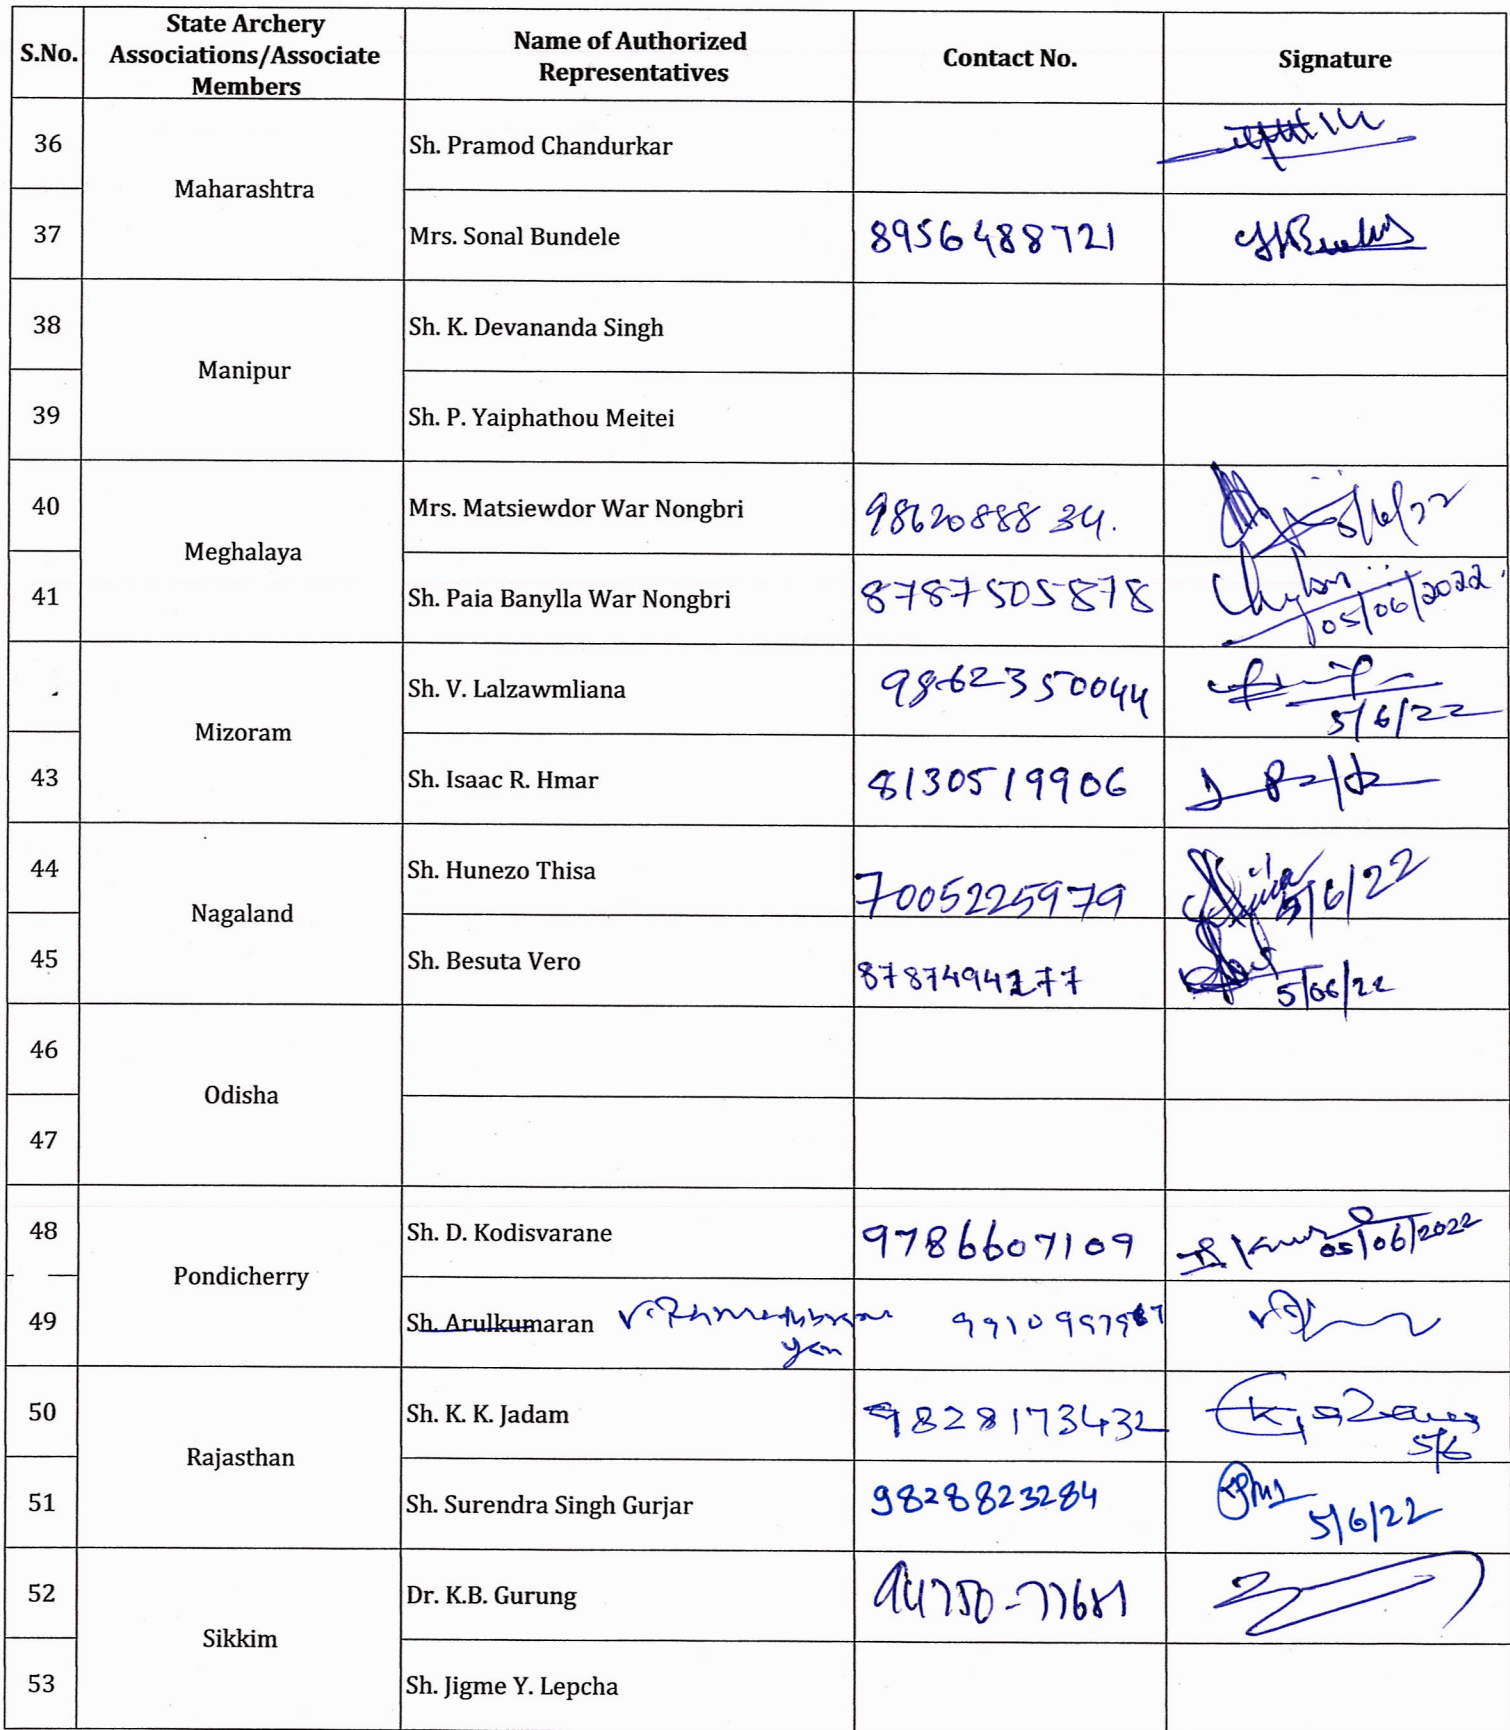 S.No.
State Archery
Associations/Associate
Members
Name of Authorized
Representatives
Contact No.
Signature
36
Maharashtra
Sh. Pramod Chandurkar
37
Mrs. Sonal Bundele
8956488721
38
Manipur
Sh. K. Devananda Singh
39
Sh. P. Yaiphathou Meitei
40
Meghalaya
Mrs. Matsiewdor War Nongbri
9862088834.
5/6/22
41
Sh. Paia Banylla War Nongbri
8787505878
05/06/2022.
Mizoram
Sh. V. Lalzawmliana
9862350044
5/6/22
43
Sh. Isaac R. Hmar
8130519906
44
Nagaland
Sh. Hunezo Thisa
7005225979
5/6/22
45
Sh. Besuta Vero
8787494277
5/06/22
46
Odisha
47
48
Pondicherry
Sh. D. Kodisvarane
9786607109
05/06/2022
49
Sh. Arulkumaran
50
Rajasthan
Sh. K. K. Jadam
9828173432
5/6
51
Sh. Surendra Singh Gurjar
9828823284
5/6/22
52
Sikkim
Dr. K.B. Gurung
53
Sh. Jigme Y. Lepcha